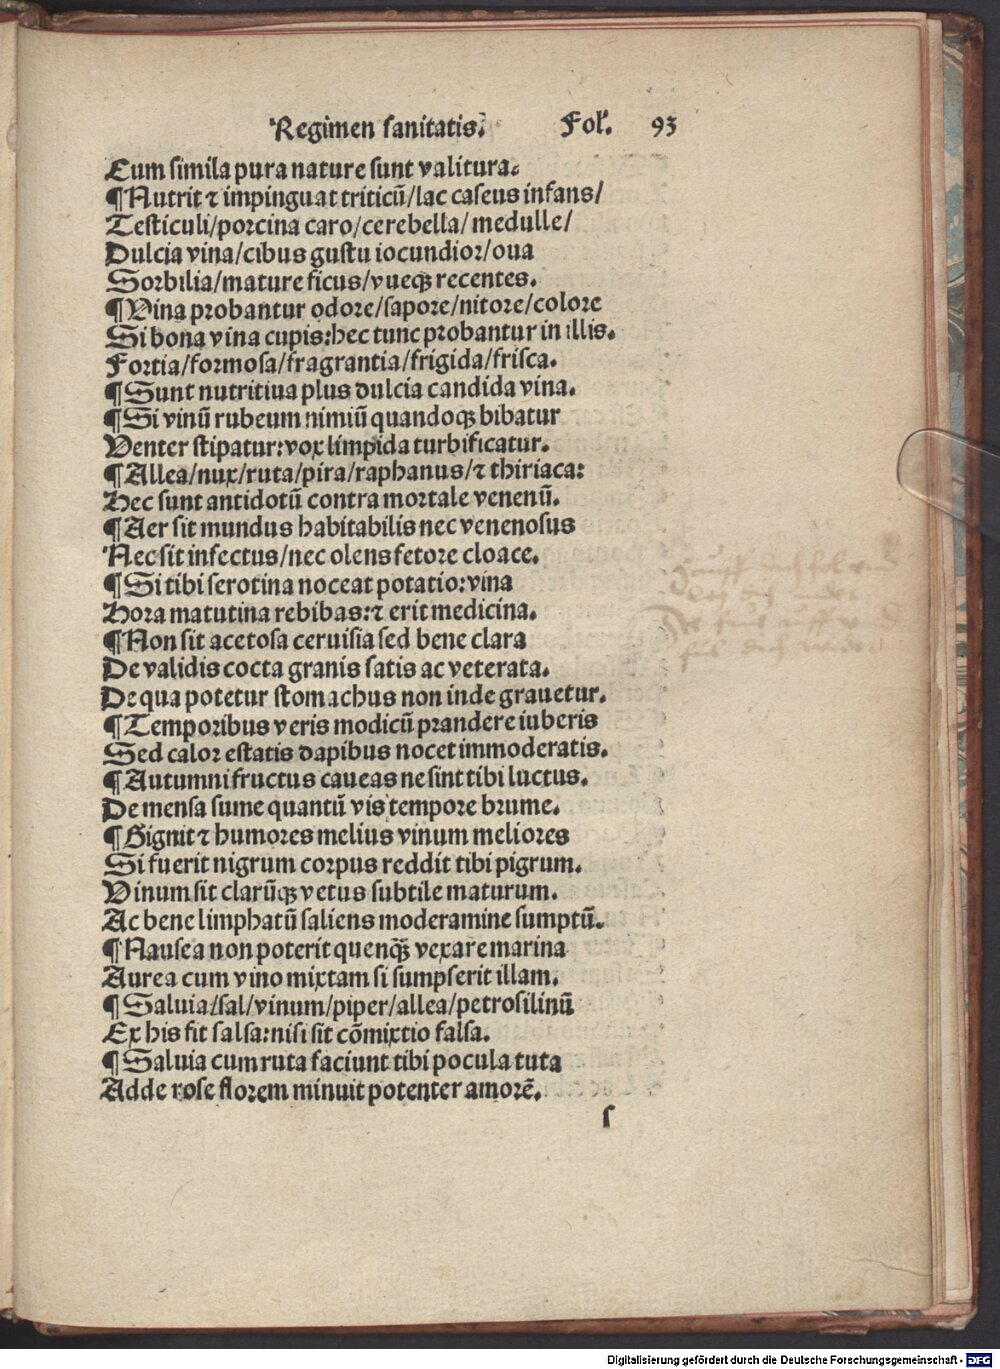 Regimen sanitatis. Fol. 93
Cum simila pura nature sunt valitura.
¶Nutrit ⁊ impinguat triticū/lac caseus infans/
Testiculi/porcina caro/cerebella/medulle/
Dulcia vina/cibus gustu iocundior/oua
Sorbilia/mature ficus/vueqꝫ recentes.
¶Vina probantur odore/sapore/nitore/colore
Si bona vina cupis:hec tunc probantur in illis.
Fortia/formosa/fragrantia/frigida/frisca.
¶Sunt nutritiua plus dulcia candida vina.
¶Si vinū rubeum nimiū quandoqꝫ bibatur
Venter stipatur:vox limpida turbificatur.
¶Allea/nux/ruta/pira/raphanus/⁊ thiriaca:
Hec sunt antidotū contra mortale venenū.
¶Aer sit mundus habitabilis nec venenosus
Nec sit infectus/nec olens fetore cloace.
¶Si tibi serotina noceat potatio:vina
Hora matutina rebibas:⁊ erit medicina.
¶Non sit acetosa ceruisia sed bene clara
De validis cocta granis satis ac veterata.
De qua potetur stomachus non inde grauetur.
¶Temporibus veris modicū prandere iuberis
Sed calor estatis dapibus nocet immoderatis.
¶Autumni fructus caueas ne sint tibi luctus.
De mensa sume quantū vis tempore brume.
¶Gignit ⁊ humores melius vinum meliores
Si fuerit nigrum corpus reddit tibi pigrum.
Vinum sit clarūqꝫ vetus subtile maturum.
Ac bene limphatū saliens moderamine sumptū.
¶Nausea non poterit quenqꝫ̄ vexare marina
Aurea cum vino mixtam si sumpserit illam.
¶Saluia/sal/vinum/piper/allea/petrosilinū
Ex his fit salsa:nisi sit cōmixtio falsa.
¶Saluia cum ruta faciunt tibi pocula tuta
Adde rose florem minuit potenter amorē.
s
Digitalisierung gefördert durch die Deutsche Forschungsgemeinschaft - DFG